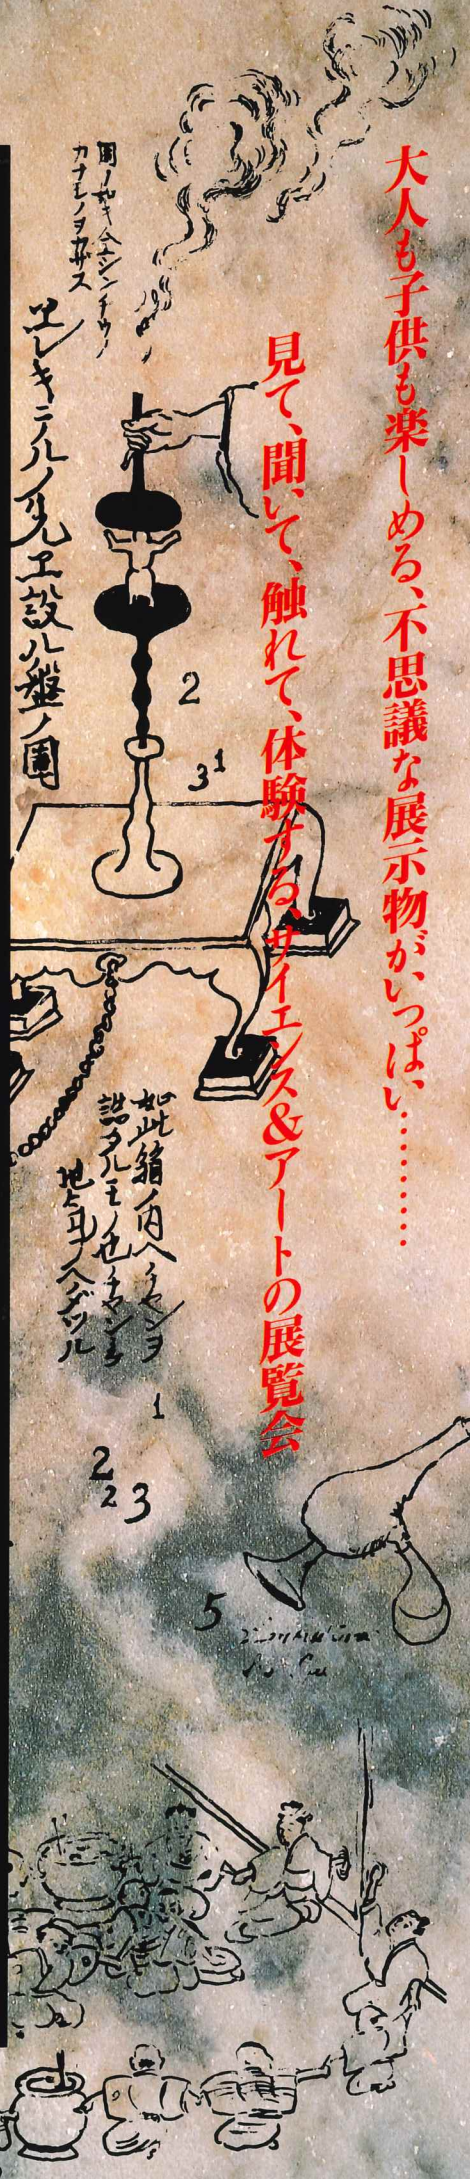 大人も子供も楽しめる、不思議な展示物が、いっぱい…………
見て、聞いて、触れて、体験する、サイエンス&アートの展覧会
圖ノ如キハシンチウノ
カナモノヲカザス
ヱレキテル
ヱ設ル盤ノ圖
2
3 1
如此箱ノ内ヘチヤンヲ
詰タルモノ也チヤンヲ
地ト耳ノヘダツル
1
2
2 3
5